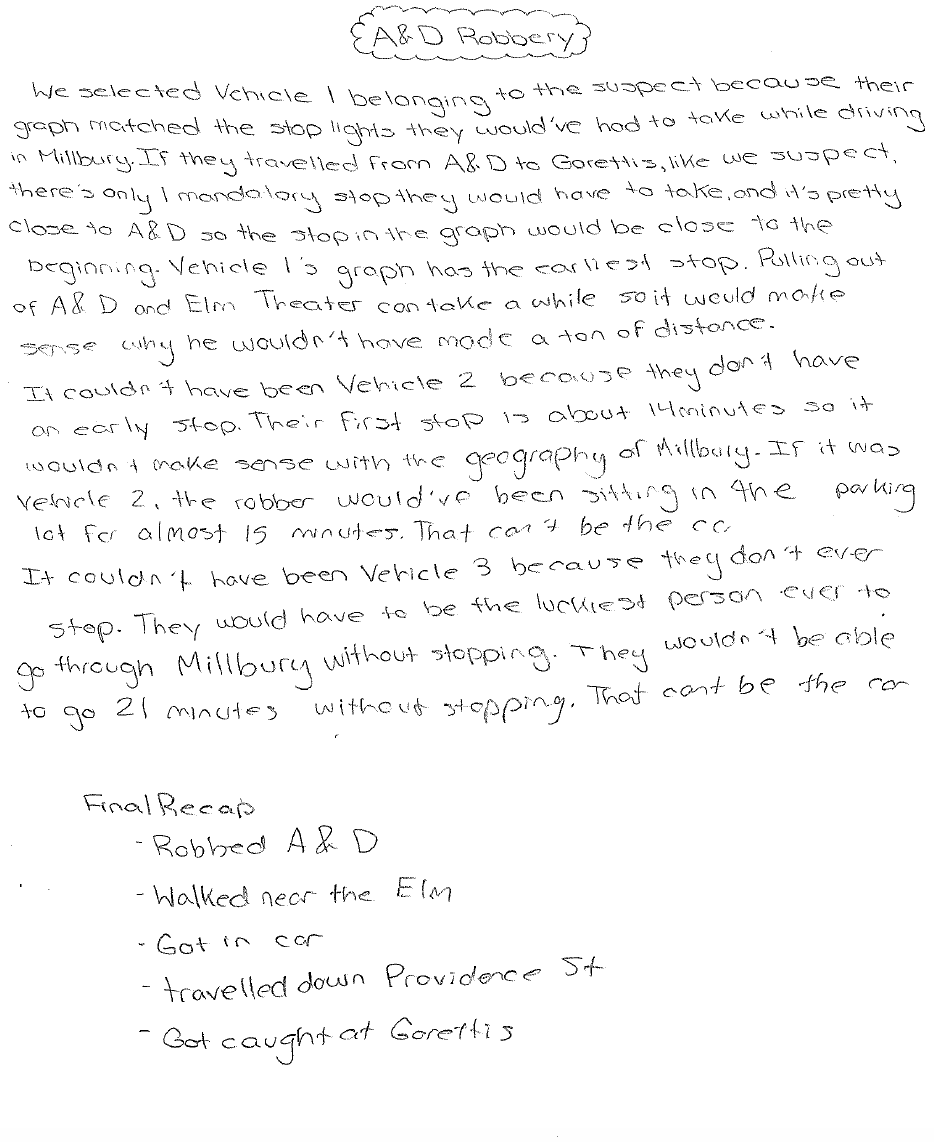 A&D Robbery
We selected Vehicle 1 belonging to the suspect because their
graph matched the stop lights they would've had to take while driving
in Millbury. If they travelled from A&D to Gorettis, like we suspect,
there's only 1 mandatory stop they would have to take, and it's pretty
close to A&D so the stop in the graph would be close to the
beginning. Vehicle 1's graph has the earliest stop. Pulling out
of A&D and Elm Theater can take a while so it would make
sense why he wouldn't have made a ton of distance.
It couldn't have been Vehicle 2 because they don't have
an early stop. Their first stop is about 14minutes so it
wouldn't make sense with the geography of Millbury. If it was
vehicle 2, the robber would've been sitting in the parking
lot for almost 15 minutes. That can't be the ca
It couldn't have been Vehicle 3 because they don't ever
stop. They would have to be the luckiest person ever to
go through Millbury without stopping. They wouldn't be able
to go 21 minutes without stopping. That cant be the car
Final Recap
- Robbed A & D
- Walked near the Elm
- Got in car
- travelled down Providence St
- Got caught at Gorettis